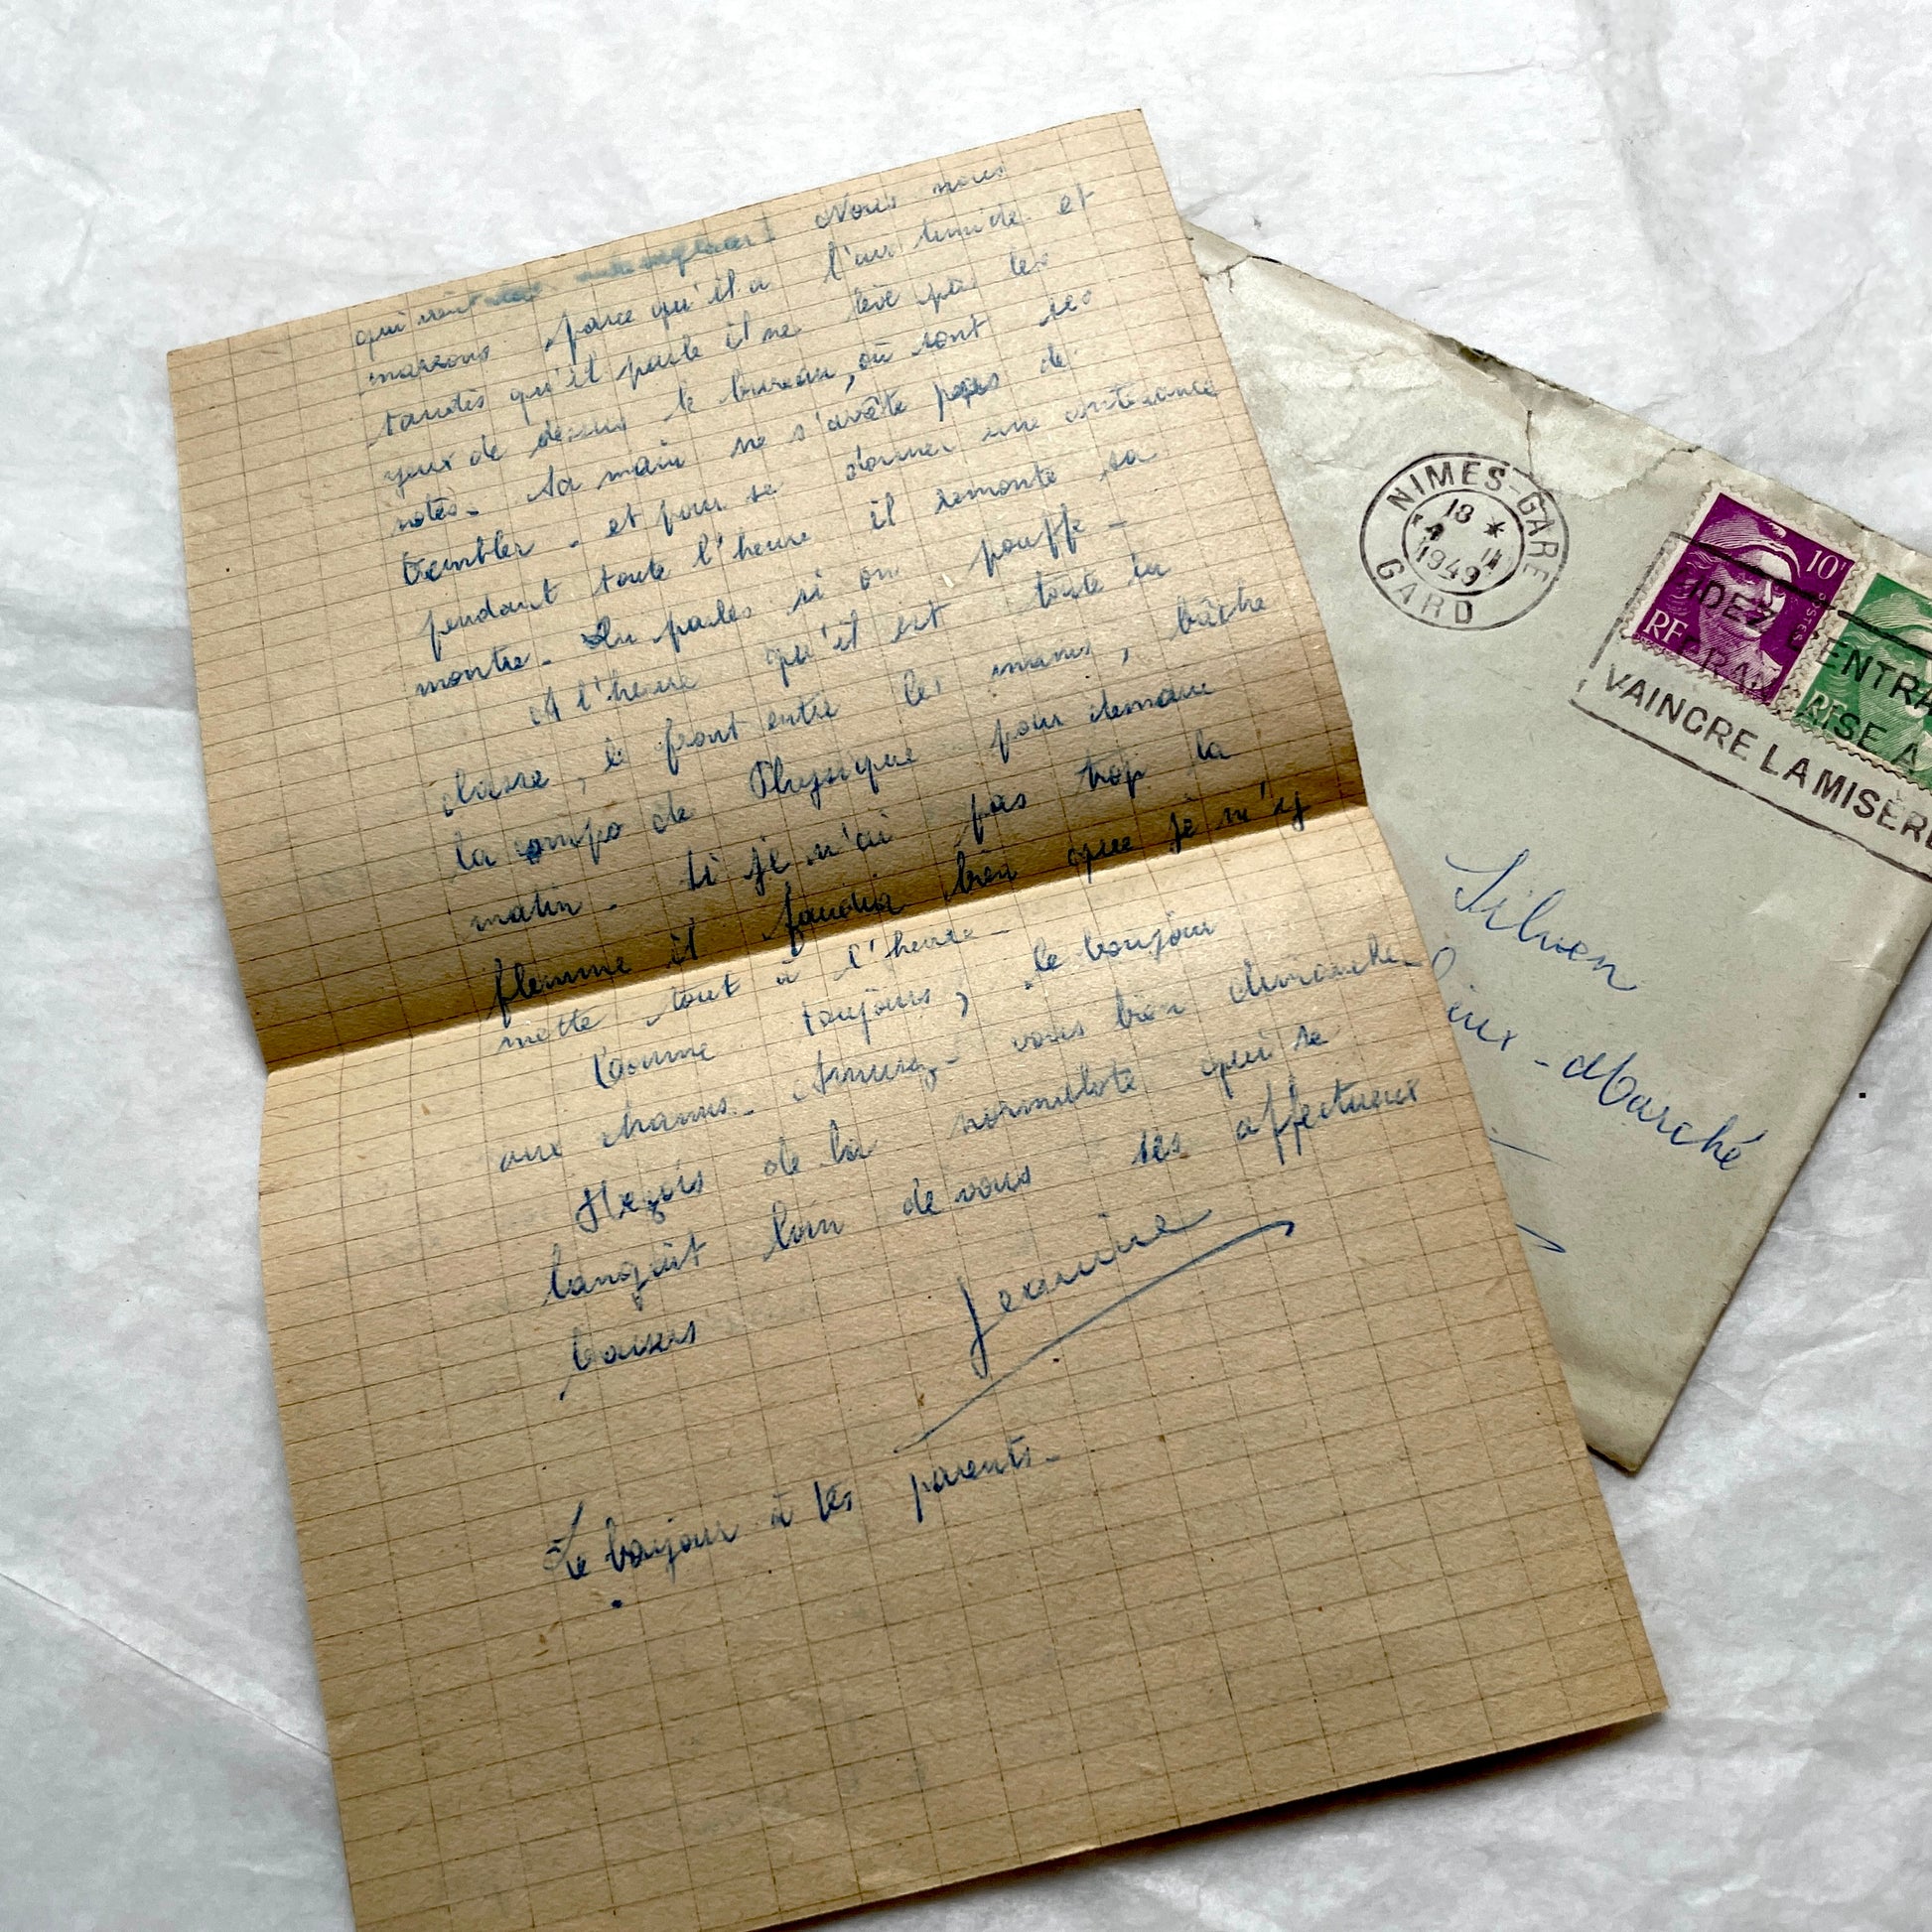 qui sont Nous nous
marrons parce qu'il a l'air timide et
tandis qu'il parle il ne lève pas les
yeux de dessus le bureau, où sont ses
notes - Sa main ne s'arête pas de
trembler - et pour se donner une contenance
pendant toute l'heure il remonte sa
montre - Tu parles si on pouffe -
A l'heure qu'il est toute la
classe, le front entre les mains, bâche
la compo de Physique pour demain
matin - Si je n'ai pas trop la
flemme il faudra bien que je m'y
mette tout à l'heure -
Comme toujours, le bonjour
aux chanus - Amusez-vous bien dimanche
Reçois de la normalote qui se
languit loin de vous ses affectueux
baisers
Jeannine
Le bonjour à tes parents -
NIMES-GARE
18 *
4 - II
1949
GARD
10F
POSTES
RF
RF
AIDEZ L'ENTRA
FRAN ISE A
VAINCRE LA MISERE
Silven
ieux-Marché